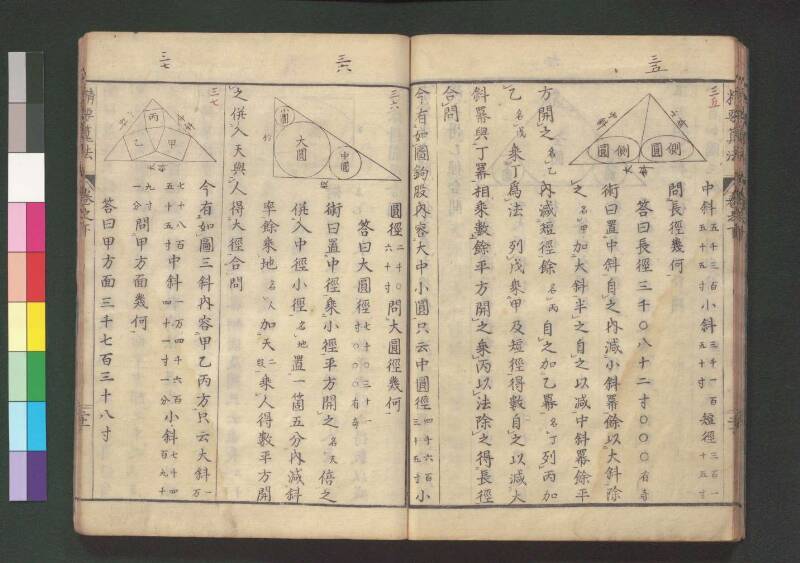 三五
三五
中斜五千三百五十五寸小斜三千一百五十寸短徑
問長徑幾何
答曰長徑三千〇八十二寸〇〇〇有奇
術曰置中斜自之內減小斜冪餘以大斜除
之名甲加大斜半之自之以減中斜冪餘平
方開之名乙內減短徑餘名丙自之加乙冪名丁列丙加
乙名戊乗丁爲法列戊乗甲及短徑得數自之以減大
斜冪與丁冪相乗數餘平方開之乗丙以法除之得長徑
合問
側圓
側圓
今有如圖鉤股內容大中小圓只云中圓徑四千六百二十五寸小
三六
三六
圓徑二千〇六十寸問大圓徑幾何
答曰大圓徑
術曰置中徑乗小徑平方開之名天倍之
併入中徑小徑名地置一箇五分內減斜
率餘乗地名人加天二段乗人得數平方開
之併入天與人得大徑合問
小圓
大圓
中圓
三七
三七
今有如圖三斜內容甲乙丙方只云大斜一万
七千八百五十五寸中斜一万四千六百四十一寸一分小斜七千四百九十
九寸一分問甲方面幾何
答曰甲方面三千七百三十八寸
丙
乙
甲
精要算法
卷之下